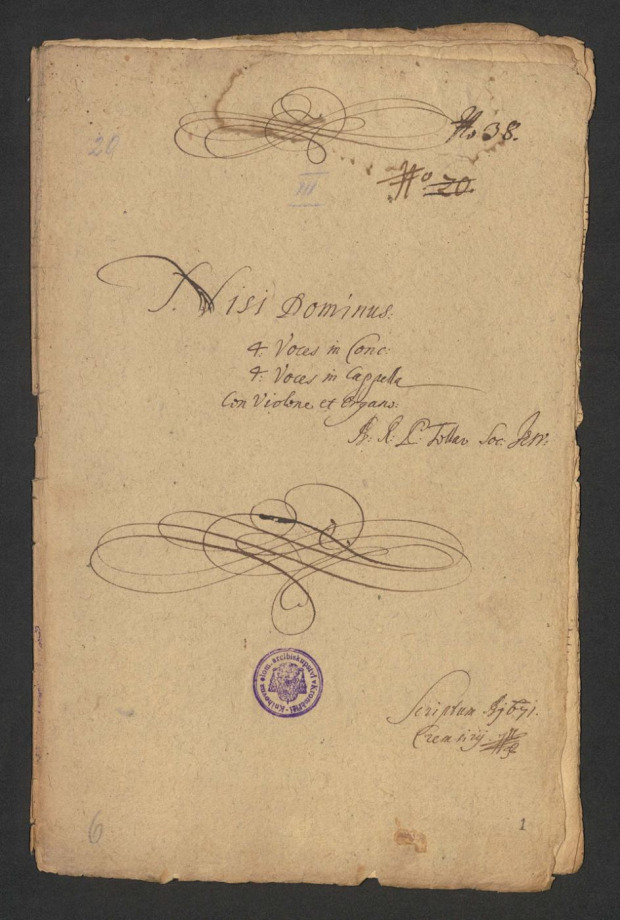 No 38.
20
No 20.
III
Nisi Dominus.
4. Voces in Conc:
4. Voces in Cappella
Con Violone et Organo.
R. P. Tollar Soc. Jesu.
Knihovna olom. arcibiskupství v Kroměříži
Scriptum 1671.
Cremsirij
6
1